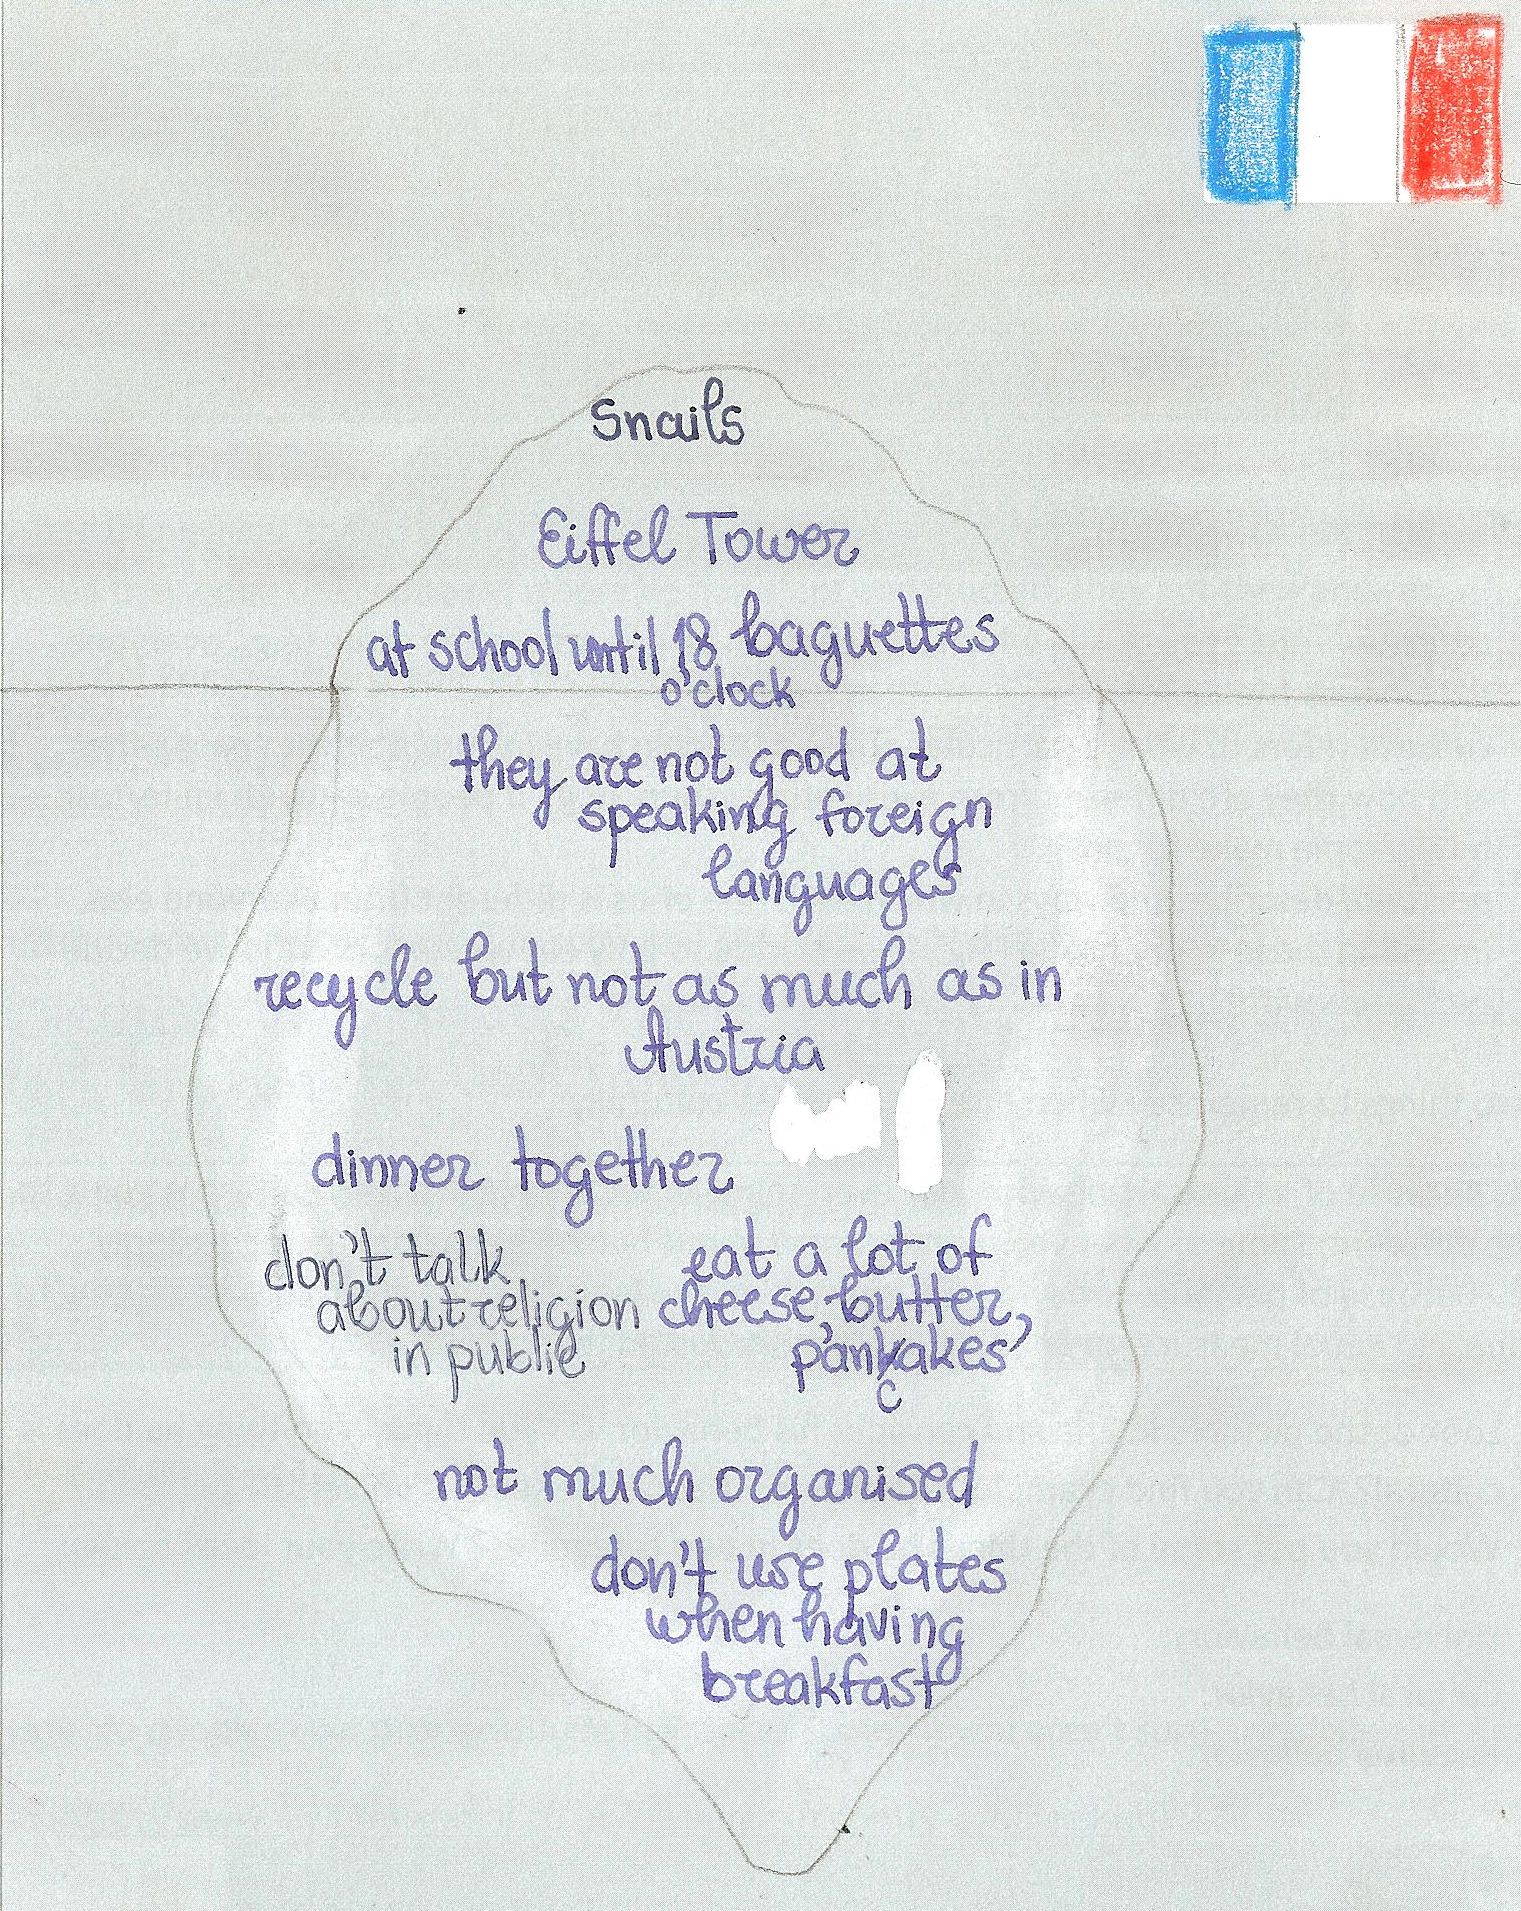 Snails
Eiffel Tower
at school until 18 baguettes
o'clock
they are not good at
speaking foreign
languages
recycle but not as much as in
Austria
dinner together
don't talk
about religion
in public
eat a lot of
cheese, butter,
pankakes
c
not much organised
don't use plates
when having
breakfast